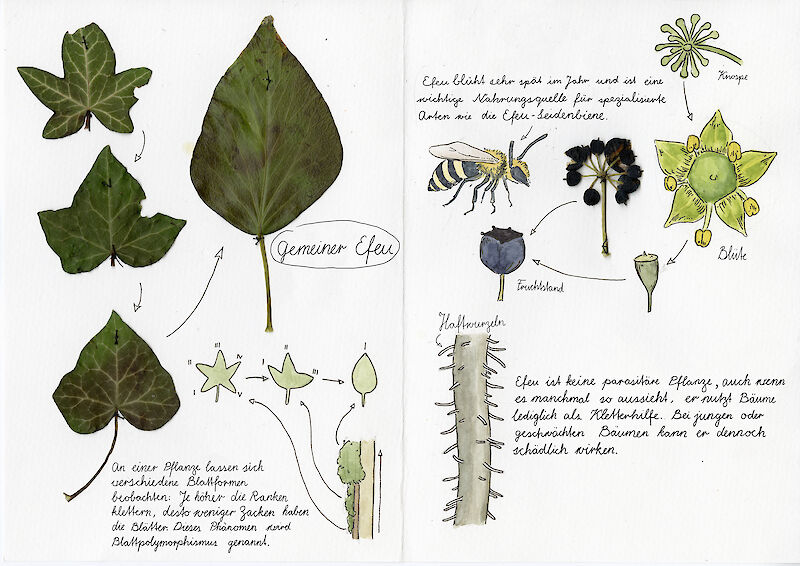 Gemeiner Efeu
I
II
III
IV
V
I
II
III
I
An einer Pflanze lassen sich
verschiedene Blattformen
beobachten: Je höher die Ranken
klettern, desto weniger Zacken haben
die Blätter. Dieses Phänomen wird
Blattpolymorphismus genannt.
Efeu blüht sehr spät im Jahr und ist eine
wichtige Nahrungsquelle für spezialisierte
Arten wie die Efeu-Seidenbiene.
Knospe
Blüte
Fruchtstand
Haftwurzeln
Efeu ist keine parasitäre Pflanze, auch wenn
es manchmal so aussieht. er nutzt Bäume
lediglich als Kletterhilfe. Bei jungen oder
geschwächten Bäumen kann er dennoch
schädlich wirken.